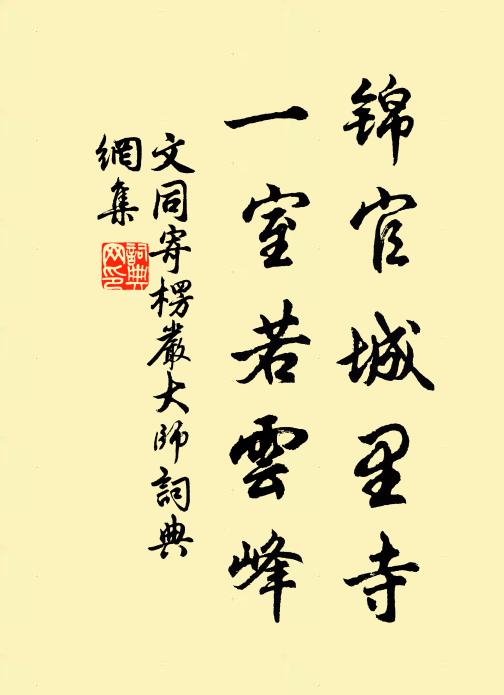 锦官城里寺
一室若雲峰
文同寄楞嚴大師詞典
網集
詞典
网印